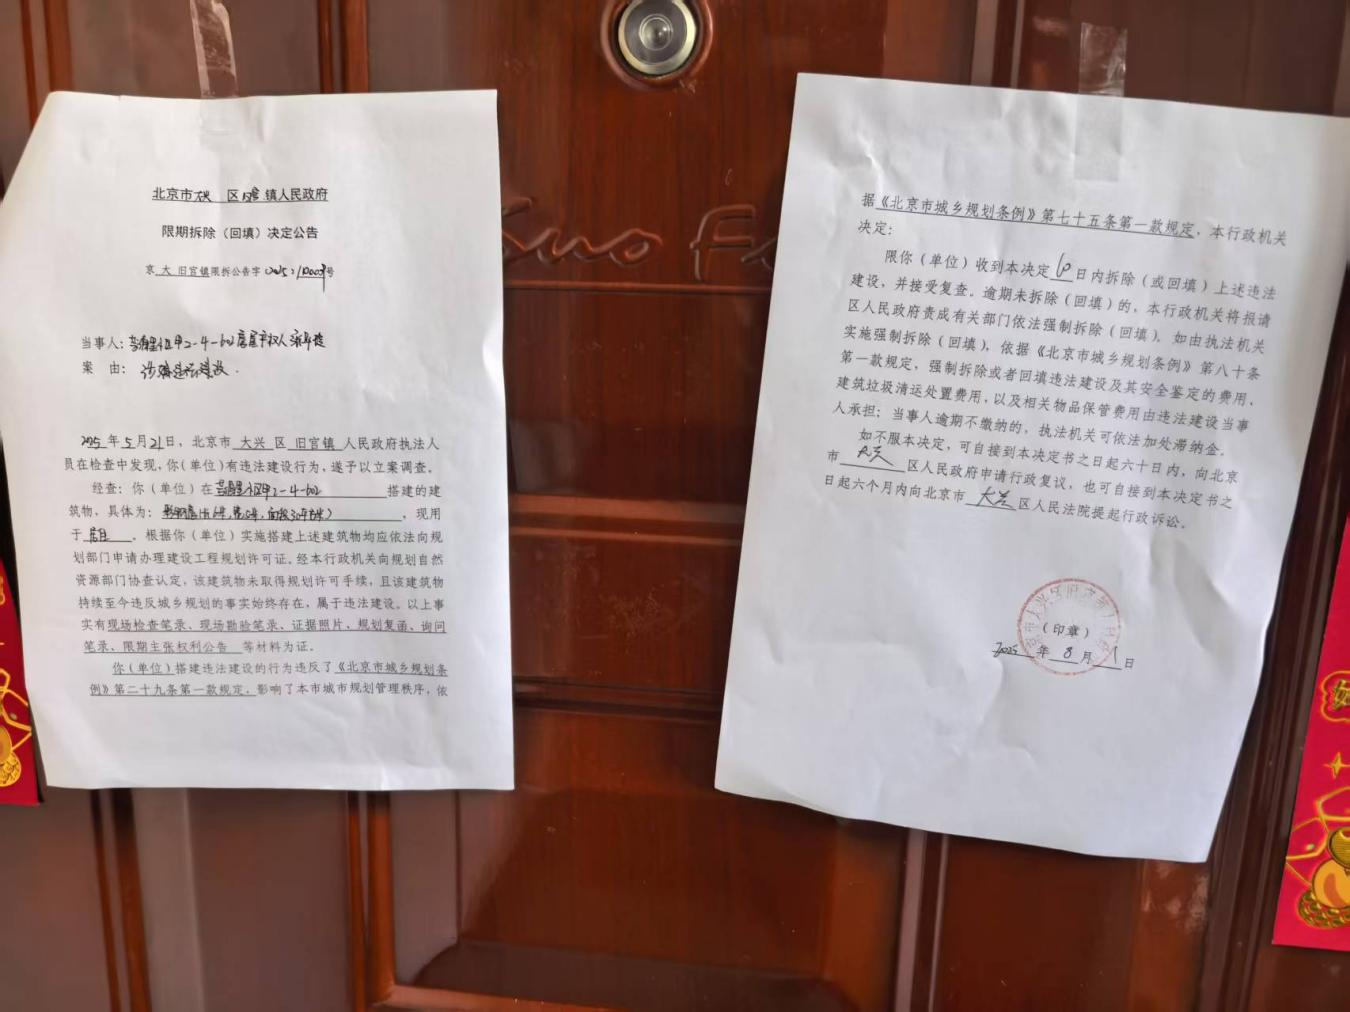 北京市大兴区旧宫镇人民政府
限期拆除（回填）决定公告
京 大 旧宫镇限拆公告字 号
当事人： 2-4-602房屋产权人
案 由：涉嫌违法建设.
2025年5月21日，北京市 大兴 区 旧宫镇 人民政府执法人
员在检查中发现，你（单位）有违法建设行为，遂予以立案调查。
经查：你（单位）在 2-4-602 搭建的建
筑物，具体为： ，现用
于 。根据你（单位）实施搭建上述建筑物均应依法向规
划部门申请办理建设工程规划许可证。经本行政机关向规划自然
资源部门协查认定，该建筑物未取得规划许可手续，且该建筑物
持续至今违反城乡规划的事实始终存在，属于违法建设。以上事
实有现场检查笔录、现场勘验笔录、证据照片、规划复函、询问
笔录、限期主张权利公告 等材料为证。
你（单位）搭建违法建设的行为违反了《北京市城乡规划条
例》第二十九条第一款规定，影响了本市城市规划管理秩序，依
据《北京市城乡规划条例》第七十五条第一款规定，本行政机关
决定：
限你（单位）收到本决定 日内拆除（或回填）上述违法
建设，并接受复查。逾期未拆除（回填）的，本行政机关将报请
区人民政府责成有关部门依法强制拆除（回填）。如由执法机关
实施强制拆除（回填），依据《北京市城乡规划条例》第八十条
第一款规定，强制拆除或者回填违法建设及其安全鉴定的费用、
建筑垃圾清运处置费用，以及相关物品保管费用由违法建设当事
人承担；当事人逾期不缴纳的，执法机关可依法加处滞纳金。
如不服本决定，可自接到本决定书之日起六十日内，向北京
市 大兴 区人民政府申请行政复议，也可自接到本决定书之
日起六个月内向北京市 大兴 区人民法院提起行政诉讼。
（印章）
2025 年 8 月 1 日